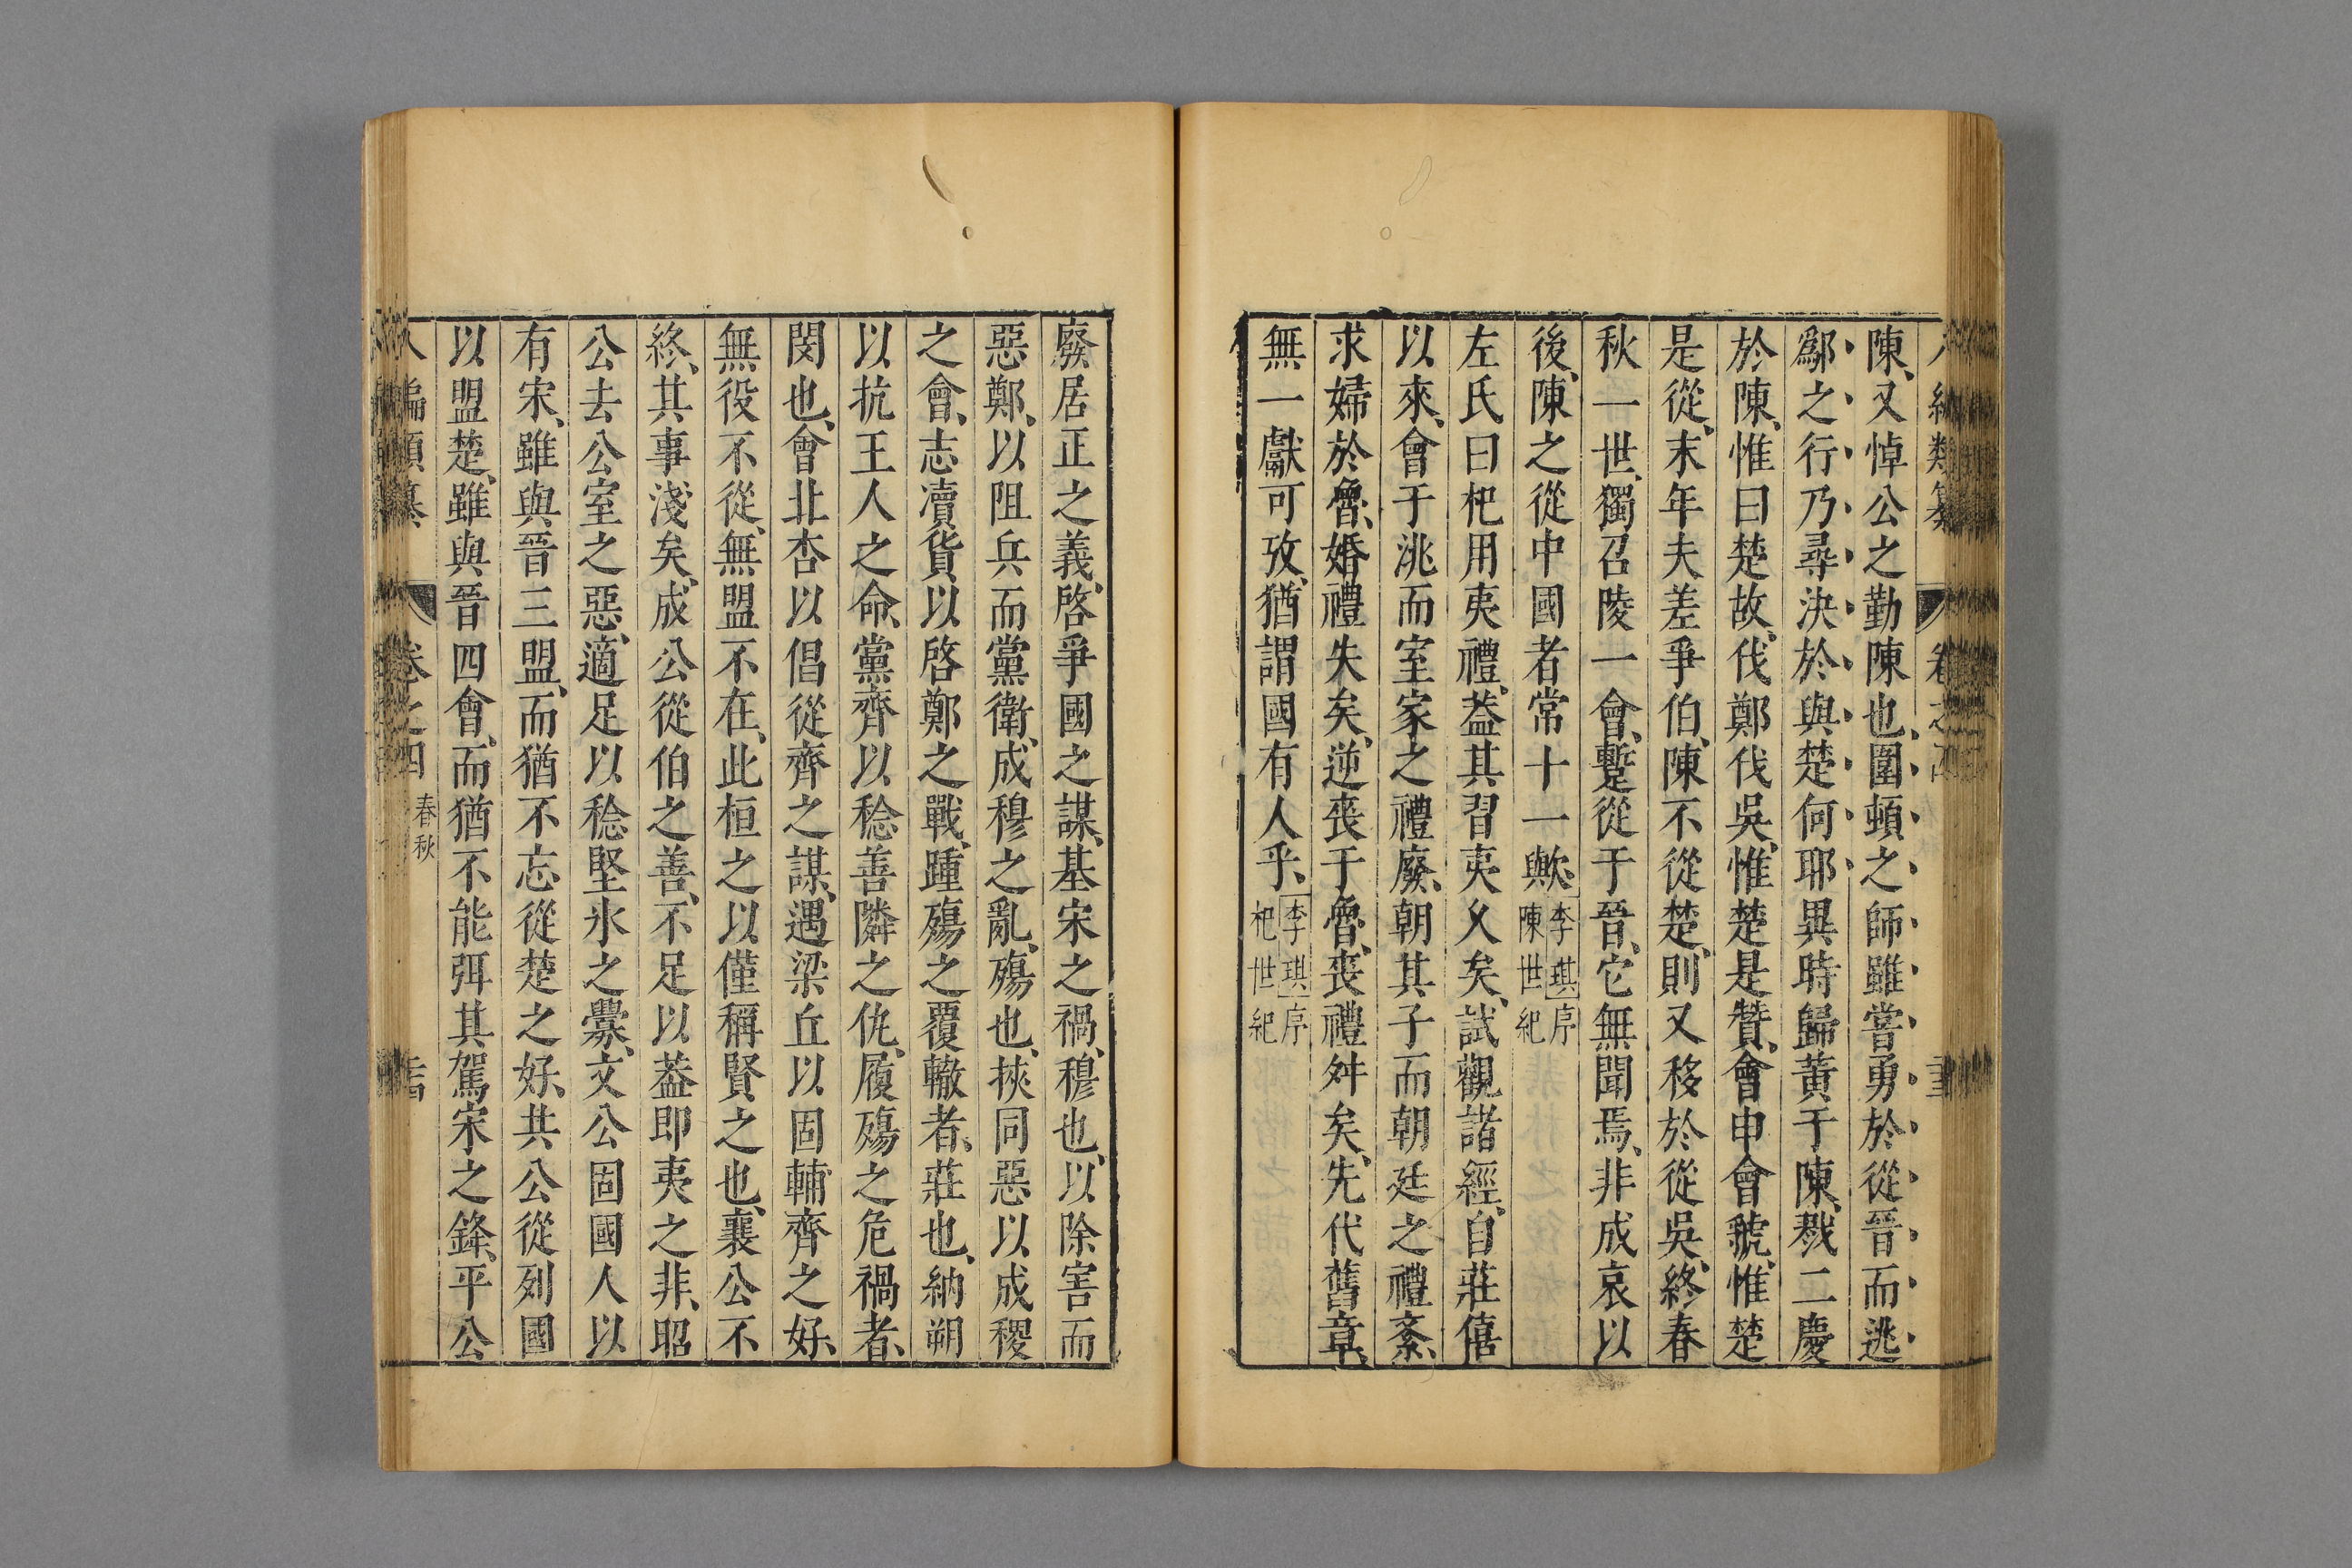 陳、又悼公之勤陳也、圍頓之師雖嘗勇於從晉而逃
鄬之行乃尋決於與楚何耶異時歸黃于陳、戮二慶
於陳、惟曰楚故、伐鄭伐吳、惟楚是贊、會申會虢、惟楚
是從、末年夫差爭伯、陳不從楚、則又移於從吳、終春
秋一世、獨召陵一會、蹔從于晉、它無聞焉、非成哀以
後、陳之從中國者常十一歟、李琪序
陳世紀
左氏曰杞用夷禮、葢其習夷乆矣、試觀諸經、自莊僖
以來、會于洮而室家之禮廢、朝其子而朝廷之禮紊、
求婦於魯、婚禮失矣、逆喪于魯、喪禮舛矣、先代舊章、
無一獻可攷、猶謂國有人乎、李琪序
杞世紀
廢居正之義、啓爭國之謀、基宋之禍、穆也、以除害而
惡鄭、以阻兵而黨衛、成穆之亂、殤也、挾同惡以成稷
之會、志瀆貨以啓鄭之戰、踵殤之覆轍者、莊也、納朔
以抗王人之命、黨齊以稔善隣之仇、履殤之危禍者、
閔也、會北杏以倡從齊之謀、遇梁丘以固輔齊之好、
無役不從、無盟不在、此桓之以僅稱賢之也、襄公不
終、其事淺矣、成公從伯之善、不足以葢即夷之非、昭
公去公室之惡、適足以稔堅氷之釁、文公固國人以
有宋、雖與晉三盟、而猶不忘從楚之好、共公從列國
以盟楚、雖與晉四會、而猶不能弭其駕宋之鋒、平公
編類纂 卷之四 春秋